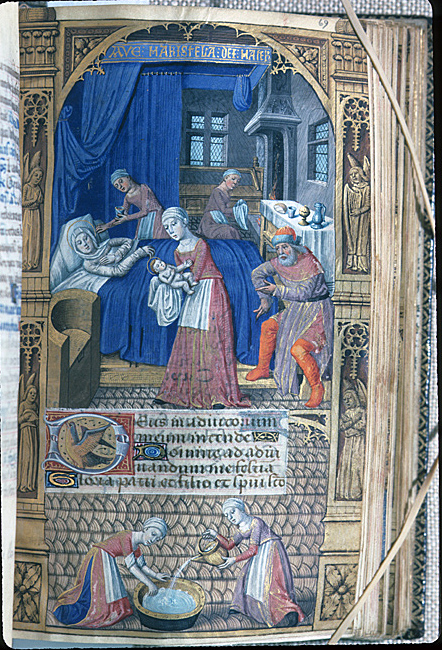 AVE MARISTELA DEI MATER
69
Deus in adiutorium
meum intende
Domine ad adiu
uandum me festina
Gloria patri et filio et spiritui sco